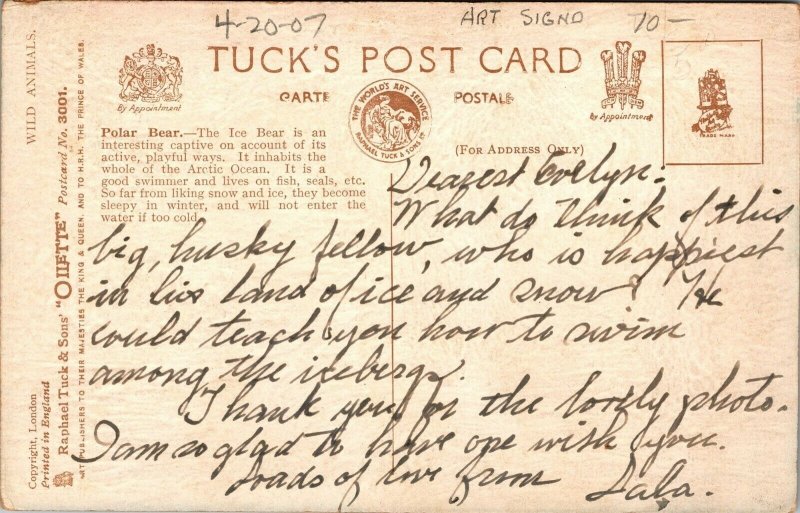 4-20-07
ART SIGND
70-
TUCK'S POST CARD
CARTE
POSTALE
By Appointment
THE WORLD'S ART SERVICE
RAPHAEL TUCK & SONS LD
By Appointment
TRADE MARK
(FOR ADDRESS ONLY)
Polar Bear.—The Ice Bear is an
interesting captive on account of its
active, playful ways. It inhabits the
whole of the Arctic Ocean. It is a
good swimmer and lives on fish, seals, etc.
So far from liking snow and ice, they become
sleepy in winter, and will not enter the
water if too cold.
Dearest Evelyn:
What do think of this
big, husky fellow, who is happiest
in his land of ice and snow? He
could teach you how to swim
among the icebergs.
Thank you for the lovely photo.
I am so glad to have one with you.
Loads of love from
Lala.
WILD ANIMALS.
Raphael Tuck & Sons' "OILETTE" Postcard No. 3001.
ART PUBLISHERS TO THEIR MAJESTIES THE KING & QUEEN, AND TO H.R.H. THE PRINCE OF WALES.
Copyright, London
Printed in England